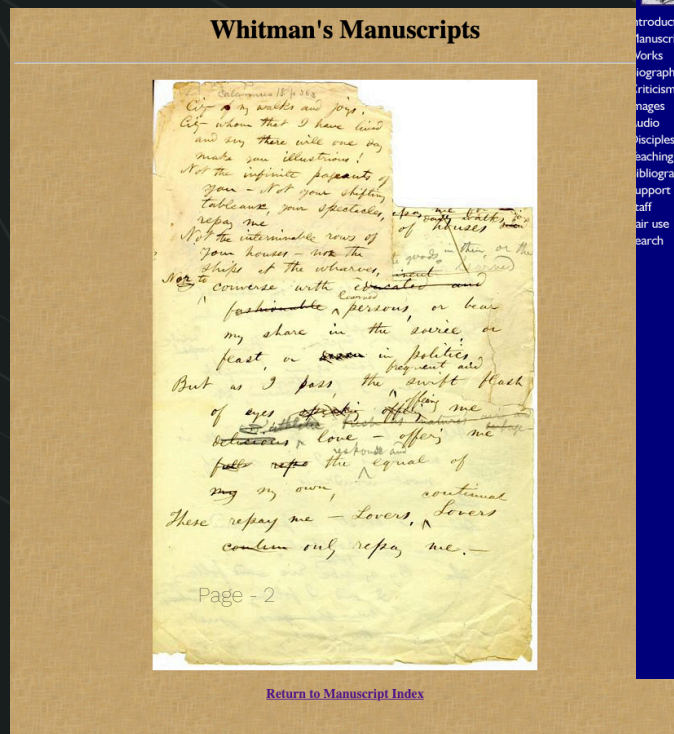 Whitman's Manuscripts
Calamus 18 p 363
City of my walks and joys!
City whom that I have lived
and sung there will one day
make you illustrious!
Not the infinite pageants of
you – Not your shifting
tableaux, your spectacles,
repay me
Not the interminable rows of
your houses – nor the
ships at the wharves,
of houses
the goods in them, or the
Nor to converse with educated and
learned
fashionable persons, or bear
my share in the soirée, or
feast, or in politics,
frequent and
But as I pass, the swift flash
offering
of eyes speaking offering me
delicious athletic love – offering me
response and
fully repa the equal of
my my own,
continual
These repay me – Lovers, Lovers
contin only repay me. –
Page - 2
Return to Manuscript Index
ntroduc
Manuscri
Works
iograph
Criticism
mages
udio
Disciples
eaching
ibliogra
upport
taff
air use
earch